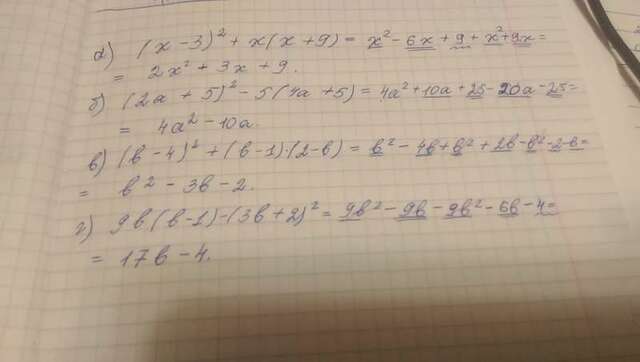 а) (x - 3)² + x(x + 9) = x² - 6x + 9 + x² + 9x =
= 2x² + 3x + 9.
б) (2a + 5)² - 5(4a + 5) = 4a² + 10a + 25 - 20a - 25 =
= 4a² - 10a.
в) (b - 4)² + (b - 1)·(2 - b) = b² - 4b + b² + 2b - b² - 2 - b =
= b² - 3b - 2.
г) 9b(b - 1) - (3b + 2)² = 9b² - 9b - 9b² - 6b - 4 =
= 17b - 4.